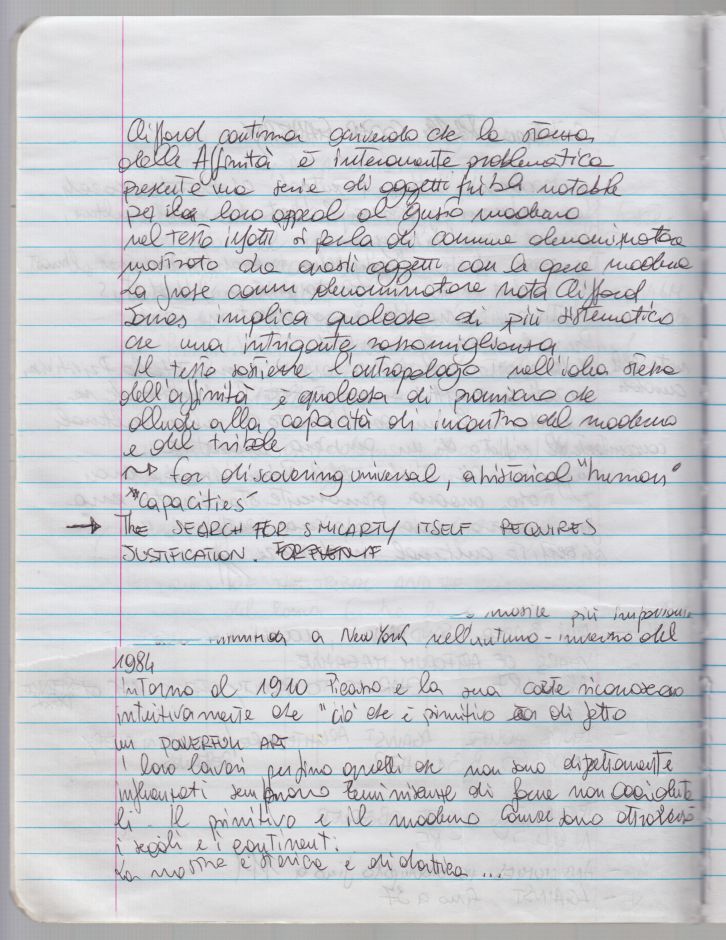 Clifford continua scrivendo che la stessa
della Affinità è interamente problematica
presente una serie di oggetti tribali notabile
per il loro appeal al gusto moderno
nel testo infatti si parla di comune denominatore
mostrato che questi oggetti con le opere moderne
La frase comun denominatore nota Clifford
James implica qualcosa di più sistematico
che una intrigante rassomiglianza
Il testo sostiene l'antropologo nell'idea stessa
dell'affinità è qualcosa di che
allude alla capacità di incontro del moderno
e del tribale
for discovering universal, ahistorical "human"
"capacities"
→ THE SEARCH FOR SIMILARTY ITSELF REQUIRES
JUSTIFICATION.
mostre più
a New York nell'autunno-inverno del
1984
intorno al 1910 Picasso e la sua corte riconoscono
intuitivamente che "ciò che è primitivo di fatto
un POWERFUL ART
i loro lavori perfino quelli che non sono direttamente
influenzati sembrano reminiscenze di forme non occidenta
li. Il primitivo e il moderno conversano attraverso
i secoli e i continenti.
La mostra è storica e didattica...